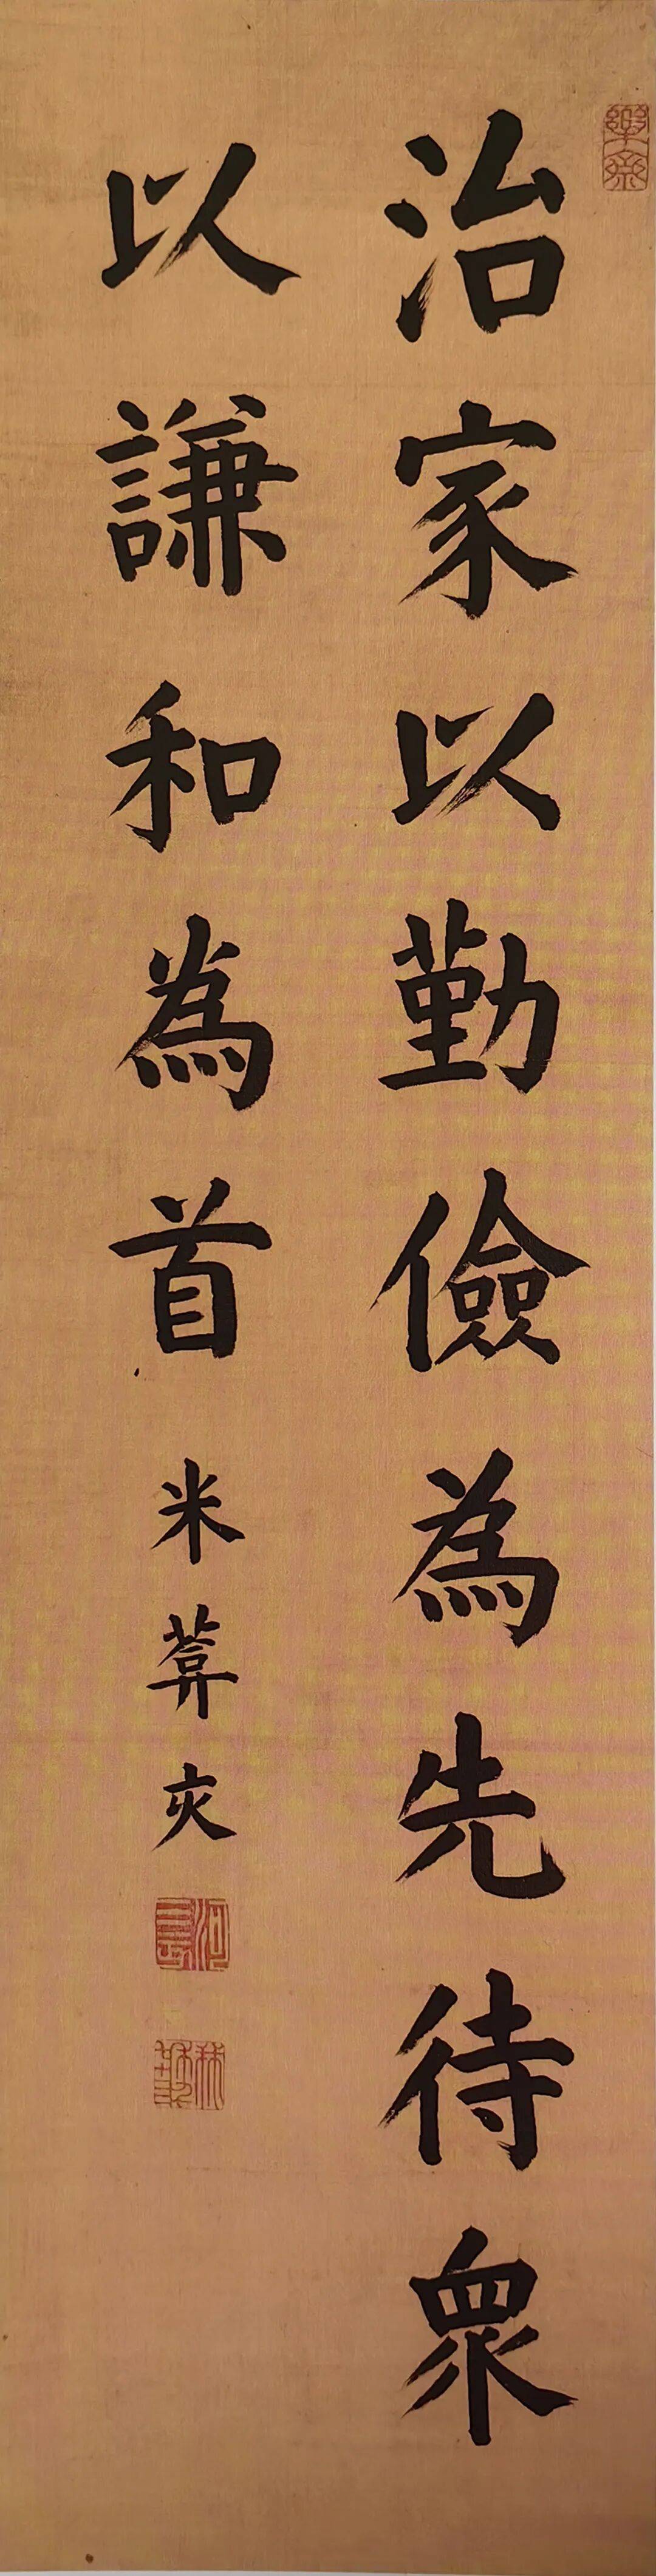 治家以勤儉為先待衆
以謙和為首
米葊亥